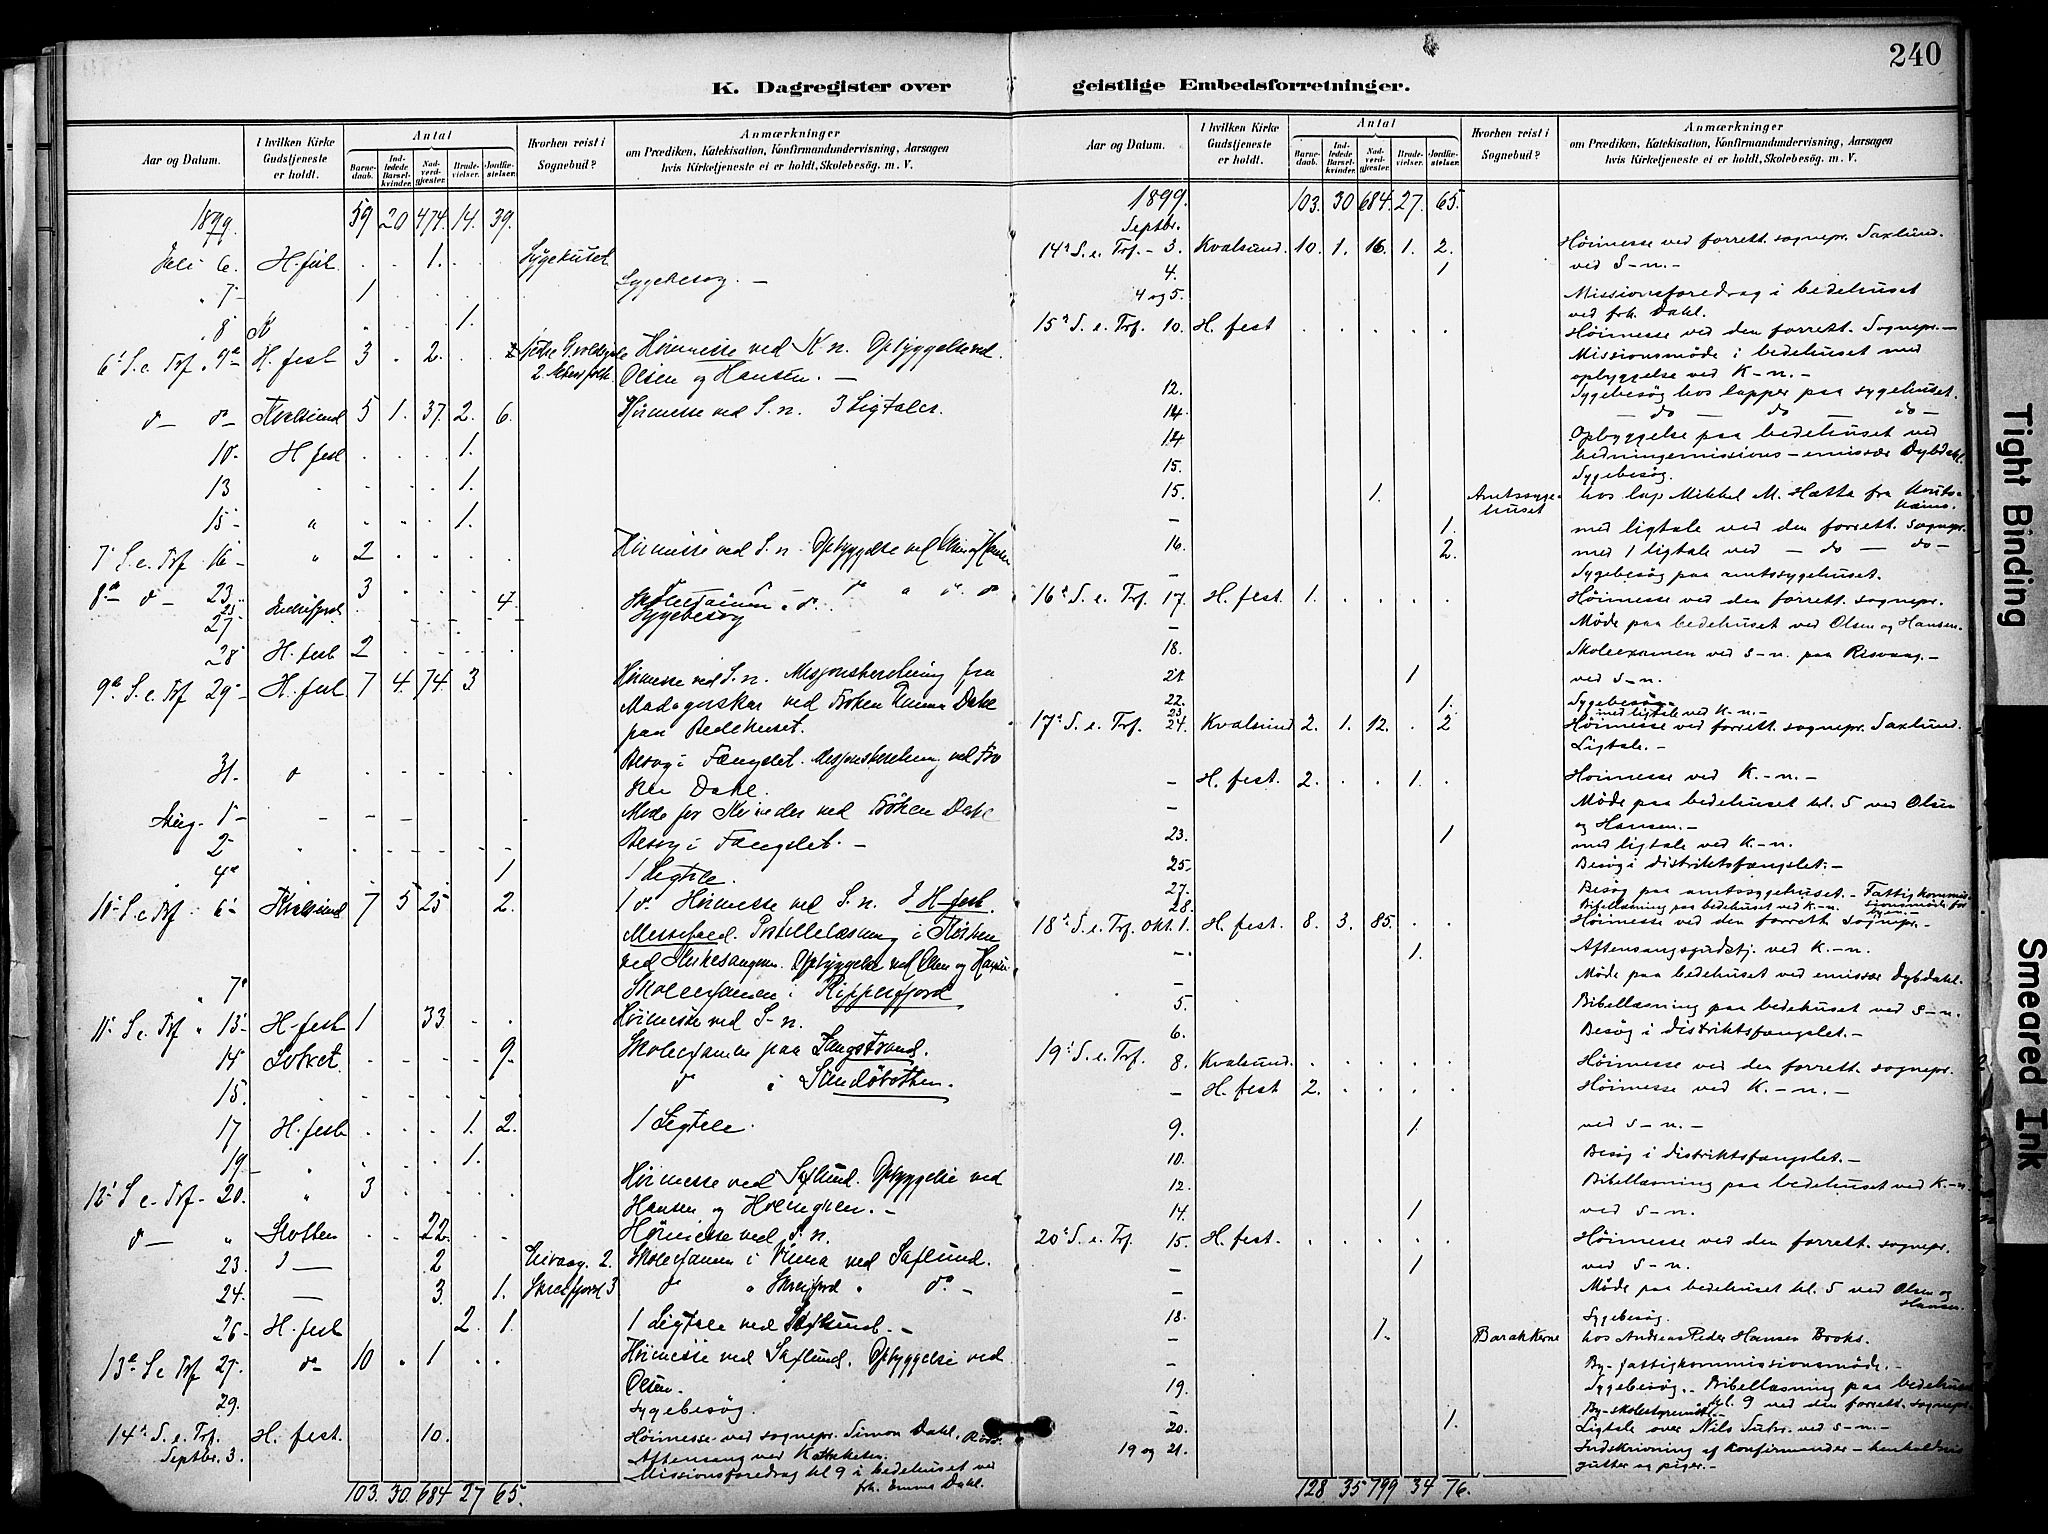 240
K. Dagregister over
geistlige Embedsforretninger.
Aar og Datum.
I hvilken Kirke Gudstjeneste er holdt.
Antal
Barnedaab.
Indledede Barselkvinder.
Nadverdgjester.
Brudevielser.
Jordfæstelser.
Hvorhen reist i Sognebud?
Anmærkninger
om Prædiken, Katekisation, Konfirmandundervisning, Aarsagen
hvis Kirketjeneste ei er holdt, Skolebesøg m. V.
1899. 59 20 474. 14. 39.
Juli 6. H. fest . . 1. . .
" 7 1 . . . . Sygebesøg. —
" 8 K 1.
6. S. e. Trf. " 9 H. fest 3 . 2. . . Høimesse ved K-n. Opbyggelse ved
Olsen og Hansen. —
Kvalsund 5 1. 37. 2. 6. Høimesse ved S. n. 3 Ligtaler.
10 H. fest . . . 1.
13 " . . . 1.
15 " . . . 1.
7 S. e. Trf. 16 " 2 . . . . Høimesse ved S. n. Opbyggelse ved Olsen og Hansen
8 23. 3
27 4. Sygebesøg
28 H. fest 2
9 S. e. Trf 29 H. fest 7 4. 74. 3 Høimesse ved S. n. Misjonsberetning fra
Madagaskar ved Frøken Emma Dahl
paa Bedehuset.
31. Besøg i Fængslet. Misjonsberetning ved Frø
ken Dahl.
Aug. 1 Møde for Kvinder ved Frøken Dahl
2 Besøg i Fængslet. —
4 1 1 Ligtale.
10 S. e. Trf 6 Kvalsund 7 5 25 . 2. 1 Høimesse ved S. n. I H-fest.
Messefald. Postillelæsning i Kirken
ved Kirkesangeren. Opbyggelse ved Olsen og Hansen
" 7 Skoleexamen i Repparfjord
11 S. e. Trf " 13 H-fest 1 33. . . Høimesse ved S-n.
14 9. Skoleexamen paa Langstrand.
15. i Sandøbotten.
17 H. fest . . . 1. 2. 1 Ligtale.
19 " . . . 1.
12 S. e. Trf 20. " 3 . . . . Høimesse ved Saxlund. Opbyggelse ved
Hansen og Holmgren. —
22. Høimesse ved S. n.
23. 2 2. Skoleexamen i ved Saxlund.
24. 3. 1. 3
26 H. fest 2. 1. 1 Ligtale ved Saxlund. —
13 S. e. Trf 27. 10 . 1 . . Høimesse ved Saxlund. Opbyggelse ved
Olsen.
29. Sygebesøg.
14. S. e. Trf. Septbr. 3. H. fest. 10. Høimesse ved sognepr. Simon Dahl,
Aftensang ved Katheketen.
Missionsforedrag kl 9 i bedehuset ved
frk. Emma Dahl.
103. 30. 684 27 65.
Aar og Datum.
I hvilken Kirke Gudstjeneste er holdt.
Antal
Barnedaab.
Indledede Barselkvinder.
Nadverdgjester.
Brudevielser.
Jordfæstelser.
Hvorhen reist i Sognebud?
Anmærkninger
om Prædiken, Katekisation, Konfirmandundervisning, Aarsagen
hvis Kirketjeneste ei er holdt, Skolebesøg m. V.
1899. 103. 30 684. 27. 65.
Septbr.
14. S. e. Trf. - 3. Kvalsund 10. 1. 16. 1. 2. Høimesse ved forrett. sognepr. Saxlund.
4. 1 ved S-n. —
4 og 5. Missionsforedrag i bedehuset
ved frk. Dahl.
15. S. e. Trf. 10. H. fest . . . . . Høimesse ved den forrett. Sognepr. —
Missionsmøde i bedehuset med
opbyggelse ved K-n. —
12. Sygebesøg hos lapper paa sygehuset.
14. — do — do — do —
14 Opbyggelse paa bedehuset ved
hedningemissions-emissær Dybdahl.
15. Sygebesøg.
15. 1. Amtssygehuset hos lap Mikkel M. Hætta fra Kautokeino.
— 1. med ligtale ved den forrett. sognepr.
16. 2. med 1 ligtale ved — do — do —
— Sygebesøg paa amtssygehuset.
16. S. e. Trf. 17. H. fest. 1. . . . . Høimesse ved den forrett. sognepr.
— Møde paa bedehuset ved Olsen og Hansen.
18. Skoleexamen ved S-n. paa Risvaag. —
21. 1 ved S-n.
22. 1. Sygebesøg
23 med ligtale ved K-n. —
17. S. e. Trf. 24. Kvalsund 2. 1. 12. . 2 Høimesse ved forrett. sognepr. Saxlund.
Ligtale. —
— H. fest. 2. . . 1. . Høimesse ved K.-n. —
— Møde paa bedehuset kl. 5 ved Olsen
og Hansen. —
23. 1 med ligtale ved K-n.
25. Besøg i distriktsfængslet. —
27. Besøg paa amtssygehuset. — Fattigkommissionsmøde for byen. —
28. Bibellæsning paa bedehuset ved K-n.
18. S. e. Trf. Okt. 1. H. fest. 8. 3. 85. . . Høimesse ved den forrett. sognepr. —
— 1. Aftensangsgudstj. ved K-n.
— Møde paa bedehuset ved emissær Dybdahl.
5. Bibellæsning paa bedehuset ved S-n.
6. Besøg i distriktsfængslet. —
19. S. e. Trf. 8. Kvalsund. . . . . . Høimesse ved den forrett. sognepr.
— H. fest 2. . . . . Høimesse ved K.-n. —
9. 1. ved S-n. —
10. Besøg i distriktsfængslet. —
12. Bibellæsning paa bedehuset ved K-n.
14. 1 ved S-n.
20. S. e. Trf. 15. H. fest. . . . . . Høimesse ved den forrett. sognepr.
— 1 ved S-n.
— Møde paa bedehuset kl. 5 ved Olsen og Hansen.
18. Sygebesøg.
— 1. Barakkerne hos Andreas Peder Hansen Books.
— By-fattigkommissionsmøde. —
19. Sygebesøg. — Bibellæsning paa bedehuset
kl. 9 ved den forrett. sognepr.
— By-skolestyremøde
20. 1. Ligtale over Nils ved S-n. —
19 og 21. Indskrivning af konfirmander — henholdsvis
gutter og piger. —
128 35 799 34 76.
Tight Binding
Smeared Ink